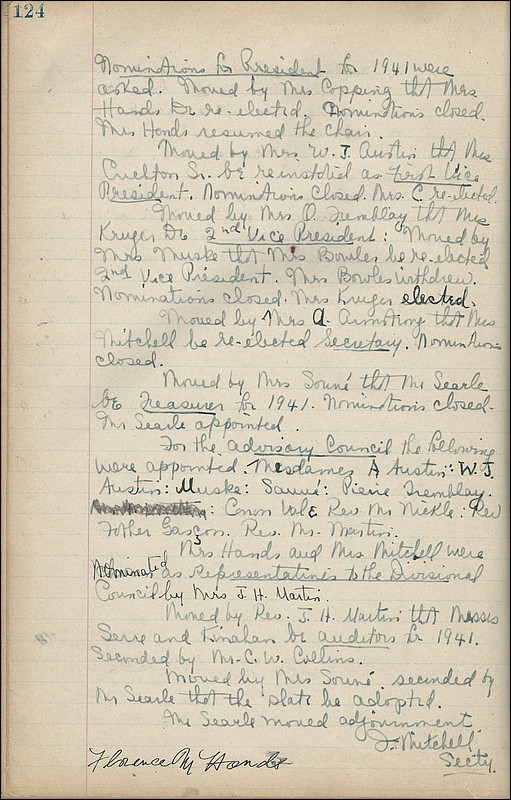 124
Nominations for President for 1941 were
asked. Moved by Mrs Copping that Mrs
Hands be re-elected. Nominations closed.
Mrs Hands resumed the chair.
Moved by Mrs. W. J. Austin that Mrs
Cuelton Sr. be reinstated as first Vice
President. Nominations closed. Mrs. C re-elected.
Moved by Mrs O. Tremblay that Mrs
Kruger be 2nd Vice President: Moved by
Mrs Muske that Mrs Bowles be re-elected
2nd Vice President. Mrs Bowles withdrew.
Nominations closed. Mrs Kruger elected.
Moved by Mrs A. Armstrong that Mrs
Mitchell be re-elected Secretary. Nominations
closed.
Moved by Mrs Souné that Mr Searle
be Treasurer for 1941. Nominations closed.
Mr Searle appointed.
For the advisory Council the following
were appointed Mesdames A Austin: W. J.
Austin: Muske: Sauné: Pierre Tremblay.
: Canon Vale Rev Mr Nickle. Rev
Father Gascon. Rev. Mr. Martin.
Mrs Hands and Mrs Mitchell were
Nominated as Representatives to the Divisional
Council by Mrs J. H. Martin.
Moved by Rev. J. H. Martin that Messrs
Serre and Kinahan be auditors for 1941.
Seconded by Mr. C. W. Collins.
Moved by Mrs Souné seconded by
Mr Searle that the slate be adopted.
Mr Searle moved adjournment.
J. Mitchell
Secty.
Florence M Hands